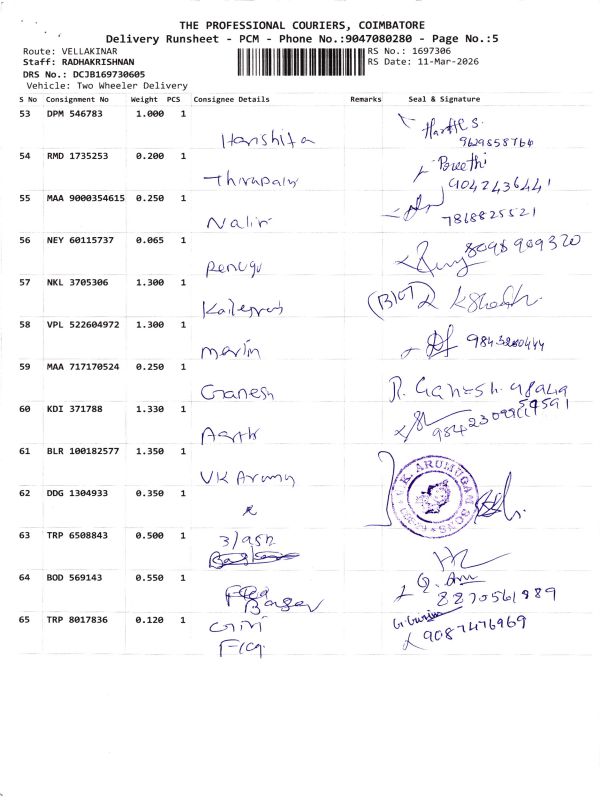 THE PROFESSIONAL COURIERS, COIMBATORE
Delivery Runsheet - PCM - Phone No.:9047080280 - Page No.:5
Route: VELLAKINAR RS No.: 1697306
Staff: RADHAKRISHNAN RS Date: 11-Mar-2026
DRS No.: DCJB169730605
Vehicle: Two Wheeler Delivery
S No Consignment No Weight PCS Consignee Details Remarks Seal & Signature
53 DPM 546783 1.000 1
Harshita
9629858764
54 RMD 1735253 0.200 1
Preethi
9042436441
55 MAA 9000354615 0.250 1
Nalin
7868825521
56 NEY 60115737 0.065 1
Renugu 8098909320
57 NKL 3705306 1.300 1
(B107)
58 VPL 522604972 1.300 1
9843280444
59 MAA 717170524 0.250 1
Ganesh R. Ganesh.
60 KDI 371788 1.330 1
61 BLR 100182577 1.350 1
VK Arumu
K. ARUMUGAM SONS
62 DDG 1304933 0.350 1
63 TRP 6508843 0.500 1
64 BOD 569143 0.550 1
8870561889
65 TRP 8017836 0.120 1
Giri
9087476969